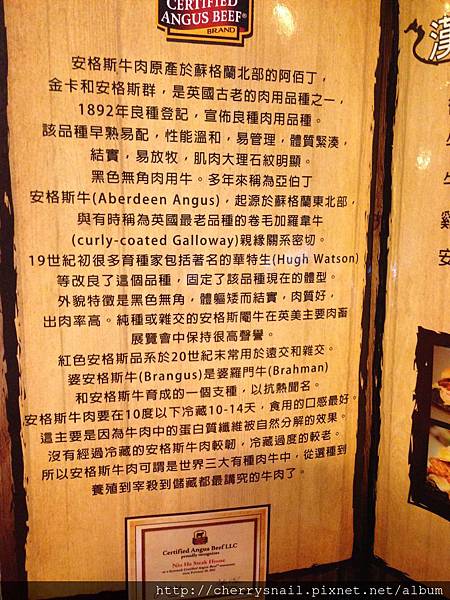 CERTIFIED
ANGUS BEEF
BRAND
安格斯牛肉原產於蘇格蘭北部的阿佰丁，
金卡和安格斯群，是英國古老的肉用品種之一，
1892年良種登記，宣佈良種肉用品種。
該品種早熟易配，性能溫和，易管理，體質緊湊，
結實，易放牧，肌肉大理石紋明顯。
黑色無角肉用牛。多年來稱為亞伯丁
安格斯牛(Aberdeen Angus)，起源於蘇格蘭東北部，
與有時稱為英國最老品種的卷毛加羅韋牛
(curly-coated Galloway)親緣關系密切。
19世紀初很多育種家包括著名的華特生(Hugh Watson)
等改良了這個品種，固定了該品種現在的體型。
外貌特徵是黑色無角，體軀矮而結實，肉質好，
出肉率高。純種或雜交的安格斯閹牛在英美主要肉畜
展覽會中保持很高聲譽。
紅色安格斯品系於20世紀末常用於遠交和雜交。
婆安格斯牛(Brangus)是婆羅門牛(Brahman)
和安格斯牛育成的一個支種，以抗熱聞名。
安格斯牛肉要在10度以下冷藏10-14天，食用的口感最好。
這主要是因為牛肉中的蛋白質纖維被自然分解的效果。
沒有經過冷藏的安格斯牛肉較韌，冷藏過度的較老。
所以安格斯牛肉可謂是世界三大有種肉牛中，從選種到
養殖到宰殺到儲藏都最講究的牛肉了。
Certified Angus Beef LLC
proudly recognizes
Niu Ba Steak House
漢
雞
安
http://cherrysnail.pixnet.net/album